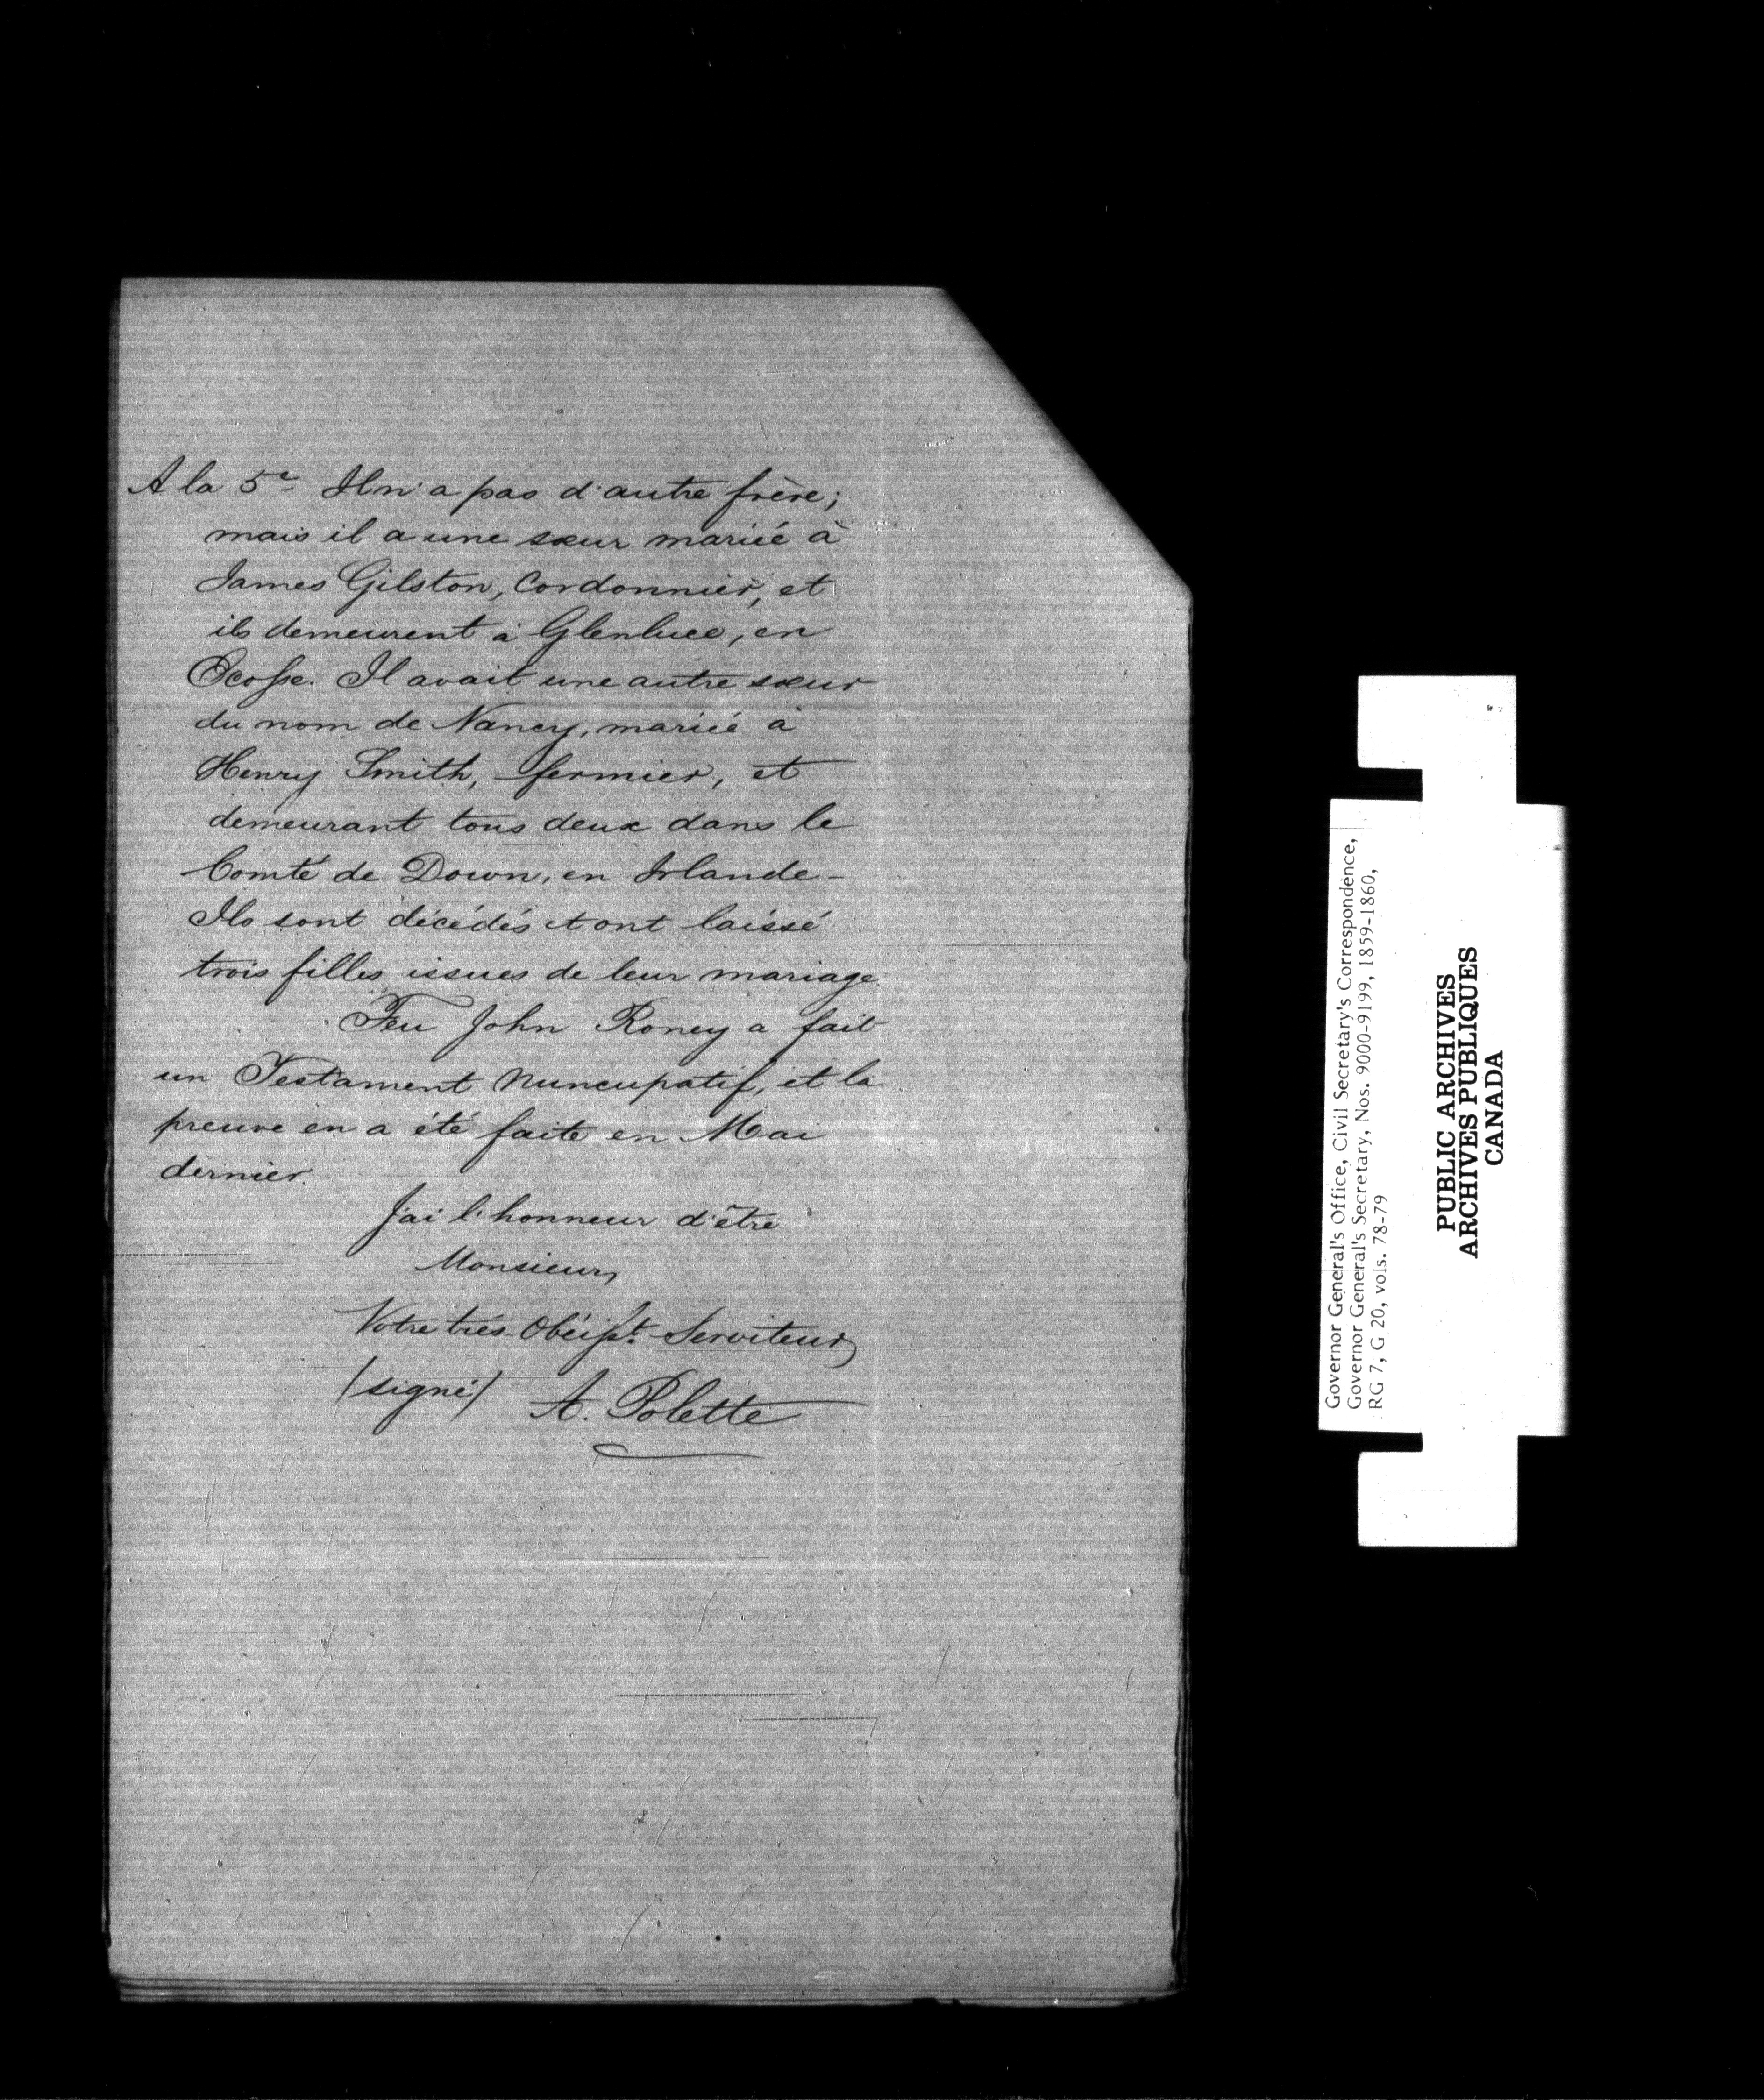 A la 5e Il n'a pas d'autre frère;
mais il a une sœur mariée à
James Gilston, Cordonnier, et
ils demeurent à Glenluce, en
Ecosse. Il avait une autre sœur
du nom de Nancy, mariée à
Henry Smith, fermier, et
demeurant tous deux dans le
Comté de Down, en Irlande -
Ils sont décédés et ont laissé
trois filles issues de leur mariage.
Feu John Roney a fait
un Testament Nuncupatif, et la
preuve en a été faite en Mai
dernier.
J'ai l'honneur d'être
Monsieur,
Votre très Obéisst. Serviteur,
(signé) A. Polette
Governor General's Office, Civil Secretary's Correspondence,
Governor General's Secretary, Nos. 9000-9199, 1859-1860,
RG 7, G 20, vols. 78-79
PUBLIC ARCHIVES
ARCHIVES PUBLIQUES
CANADA